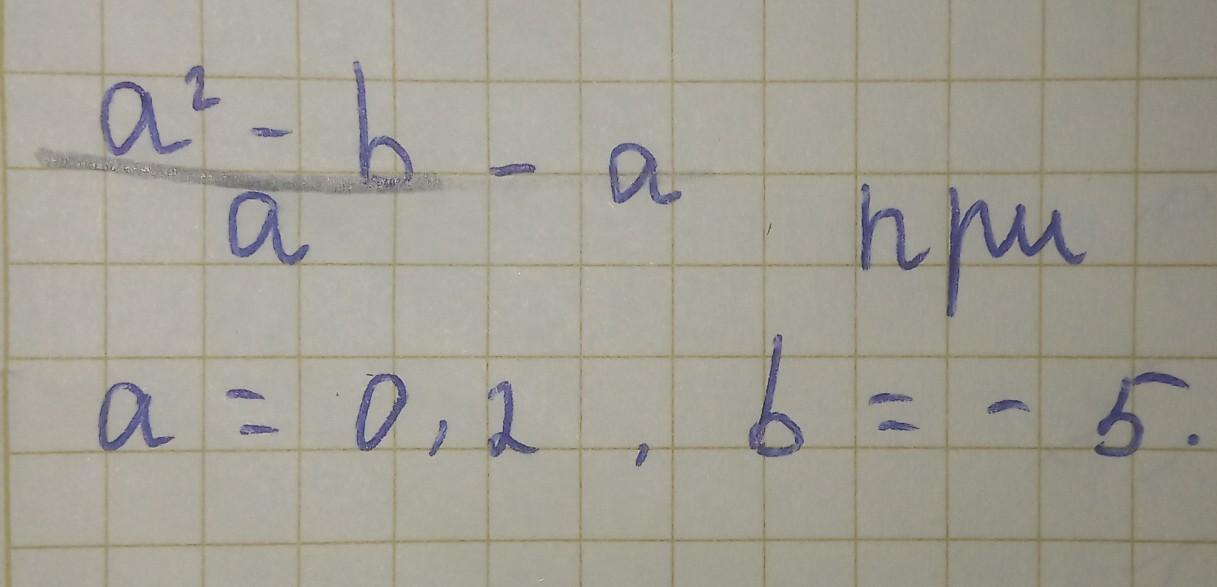 a² - b
a - a при
a = 0,2 , b = - 5.